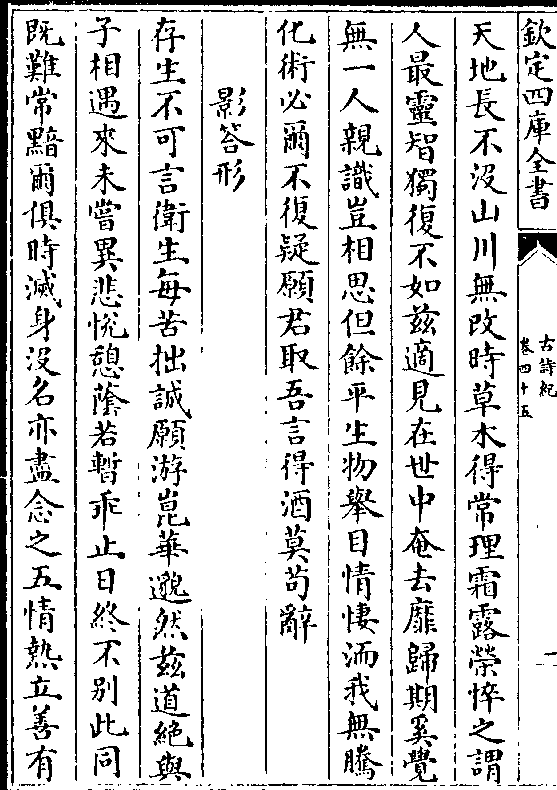 欽定四庫全書
古詩紀
卷四十五
一
天地長不沒山川無改時草木得常理霜露榮悴之謂
人最靈智獨復不如茲適見在世中奄去靡歸期奚覺
無一人親識豈相思但餘平生物舉目情悽洏我無騰
化術必爾不復疑願君取吾言得酒莫苟辭
影答形
存生不可言衛生每苦拙誠願游崑華邈然茲道絶與
子相遇來未嘗異悲恱憩蔭若暫乖止日終不別此同
既難常黯爾俱時滅身沒名亦盡念之五情熱立善有